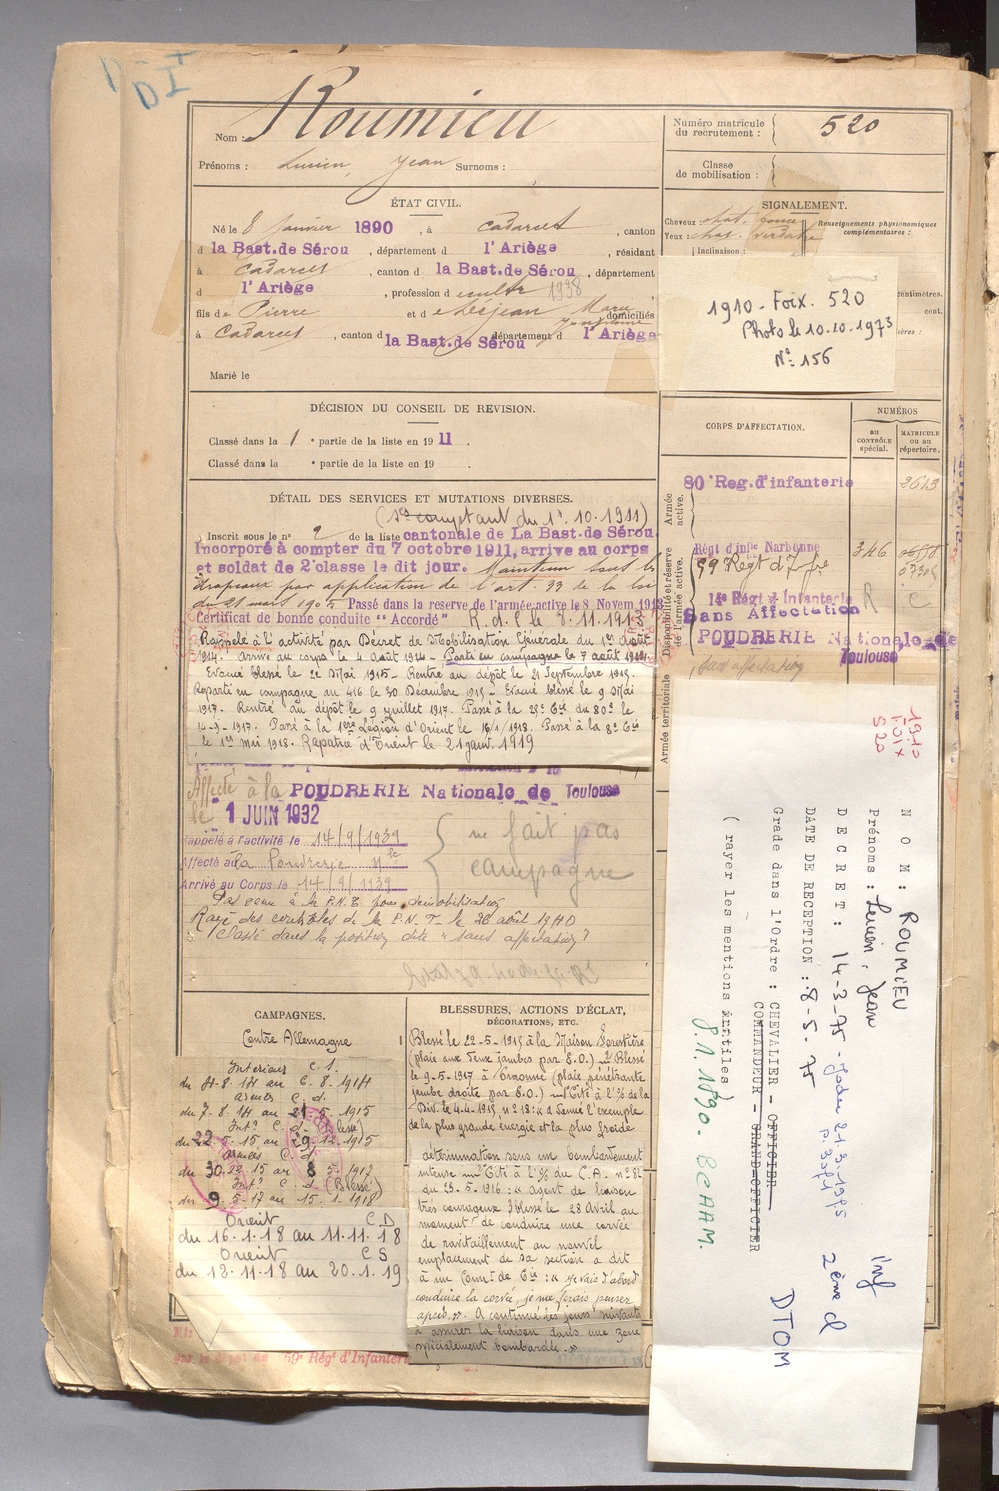 D I
Nom : Roumieu
Prénoms : Lucien, Jean Surnoms :
Numéro matricule du recrutement : 520
Classe de mobilisation :
ÉTAT CIVIL.
Né le 8 Janvier 1890, à Cadarcet, canton
d la Bast. de Sérou, département d l'Ariège, résidant
à Cadarcet, canton d la Bast. de Sérou, département
d l'Ariège, profession d cultr 1938
fils de Pierre et de Lesjean Marie domiciliés
à Cadarcet, canton d la Bast. de Sérou département d l'Ariège
Marié le
SIGNALEMENT.
Cheveux : chat.
Yeux : chat. verdâtre
Renseignements physionomiques complémentaires :
Inclinaison :
centimètres.
cent.
1910 - Foix. 520
Photo le 10.10.1973
N° 156
DÉCISION DU CONSEIL DE REVISION.
Classé dans la 1e partie de la liste en 1911.
Classé dans la e partie de la liste en 19 .
CORPS D'AFFECTATION.
NUMÉROS
au contrôle spécial.
matricule ou au répertoire.
Armée active.
80e Reg. d'infanterie 2613
Disponibilité et réserve de l'armée active.
Régt d'infie Narbonne 346
59 Régt d'Infie
14e Régt d'Infanterie R C
Sans Affectation
POUDRERIE Nationale de Toulouse
Sans affectation
Armée territoriale
DÉTAIL DES SERVICES ET MUTATIONS DIVERSES.
(So comptant du 1r. 10. 1911)
Inscrit sous le n° 2 de la liste cantonale de La Bast. de Sérou.
Incorporé à compter du 7 octobre 1911, arrive au corps
et soldat de 2e classe le dit jour. Maintenu sous les
drapeaux par application de l'art. 33 de la loi
du 21 mars 1905 Passé dans la reserve de l'armée active le 8 Novem. 1913
Certificat de bonne conduite "Accordé" R. d. l. le 8.11.1913
Rappelé à l'activité par Décret de Mobilisation Générale du 1er août
1914. Arrivé au corps le 4 Août 1914 - Parti en campagne le 7 août 1914.
Evacué blessé le 22 Mai 1915 - Rentré au dépôt le 21 Septembre 1915.
Reparti en campagne au 416 le 30 Décembre 1915 - Evacué blessé le 9 Mai
1917. Rentré au dépôt le 9 juillet 1917. Passé à la 25e Cie du 80e le
14-9-1917. Passé à la 1ère Légion d'Orient le 16/1/1918. Passé à la 8e Cie
le 1er Mai 1918. Rapatrié d'Orient le 21 janv. 1919
Affecté à la POUDRERIE Nationale de Toulouse
le 1 JUIN 1932
Rappelé à l'activité le 14/9/1939
Affecté à la Poudrerie Nle
Arrivé au Corps le 14/9/1939
ne fait pas campagne
Pas venu à la P.N.T. pour démobilisation
Rayé des contrôles de la P.N.T. le 26 août 1940
Classé dans la position dite "sans affectation"
CAMPAGNES.
Contre Allemagne
Intérieur C. S.
du 4-8-14 au 6.8.1914
Armées C. d.
du 7-8-14 au 21-5-1915
Intr C. d. (Blessé)
du 22-5-15 au 29-12-1915
Armées C. d.
du 30.12.15 au 8 5/1917
Intr C. d. (Blessé)
du 9.5-17 au 15.1.1918
Orient C D
du 16.1.18 au 11.11.18
Orient C S
du 12.11.18 au 20.1.19
59e Régt d'Infanterie
BLESSURES, ACTIONS D'ÉCLAT, DÉCORATIONS, ETC.
Blessé le 22-5-1915 à la Maison Forestière
(plaie aux deux jambes par E.O.) Blessé
le 9-5-1917 à Craonne (plaie pénétrante
jambe droite par E.O.) Cité à l'O/ de la
Div. le 4-4-1915, n° 18 : « a donné l'exemple
de la plus grande énergie et la plus froide
détermination sous un bombardement
intense Cité à l'O/ du C.A. n° 32
du 23-5-1916 : « agent de liaison
très courageux. Blessé le 28 Avril au
moment de conduire une corvée
de ravitaillement au nouvel
emplacement de sa section a dit
à son Comt de Cie : « je vais d'abord
conduire la corvée, je me ferais panser
après. ». A continué les jours suivants
à assurer la liaison dans une zone
spécialement bombardée. »
1910
FOIX
520
NOM : ROUMIEU
Prénoms : Lucien, Jean
DECRET : 14-3-75 - 21.3.1975
DATE DE RECEPTION : 8-5-75
Grade dans l'Ordre : CHEVALIER - OFFICIER
COMMANDEUR - GRAND-OFFICIER
( rayer les mentions inutiles )
8.1.1890 - BCAAM.
inf
2ème Cl
DTOM